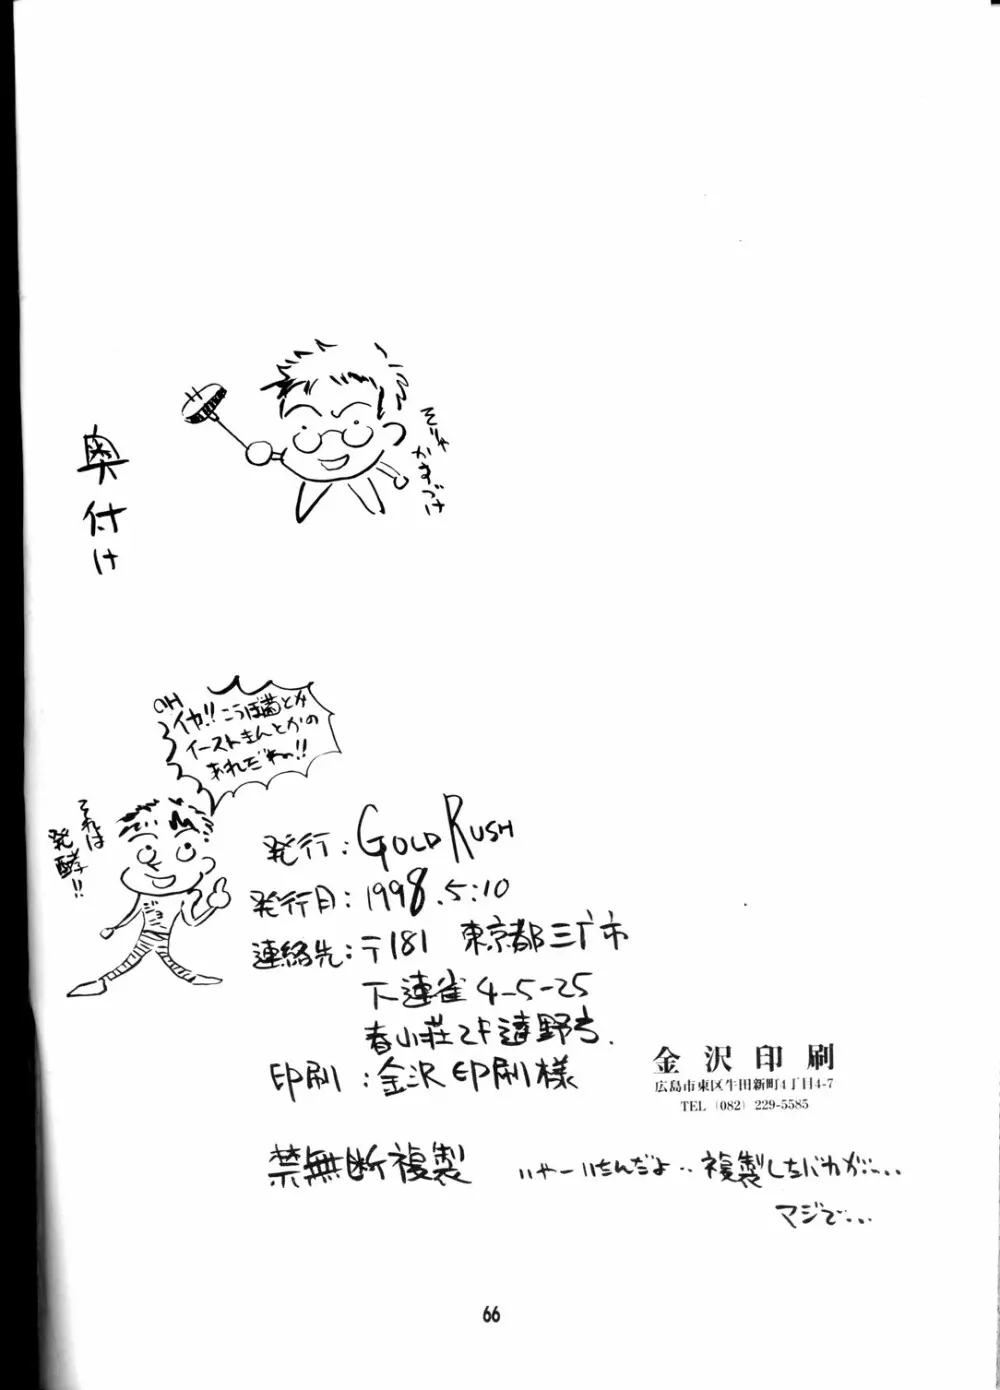 奥付け
そりゃ
かすづけ
OH
イヤ!!こうぼ菌とか
イーストきんとかの
あれだねっ!!
それは
発酵!!
発行:GOLD RUSH
発行日:1998.5.10
連絡先:〒181 東京都三广市
下連雀4-5-25
春山荘2F遠野方.
印刷:金沢印刷様
金沢印刷
広島市東区牛田新町4丁目4-7
TEL (082) 229-5585
禁無断複製 いやーいたんだよ‥複製したバカが‥‥
マジで...
66